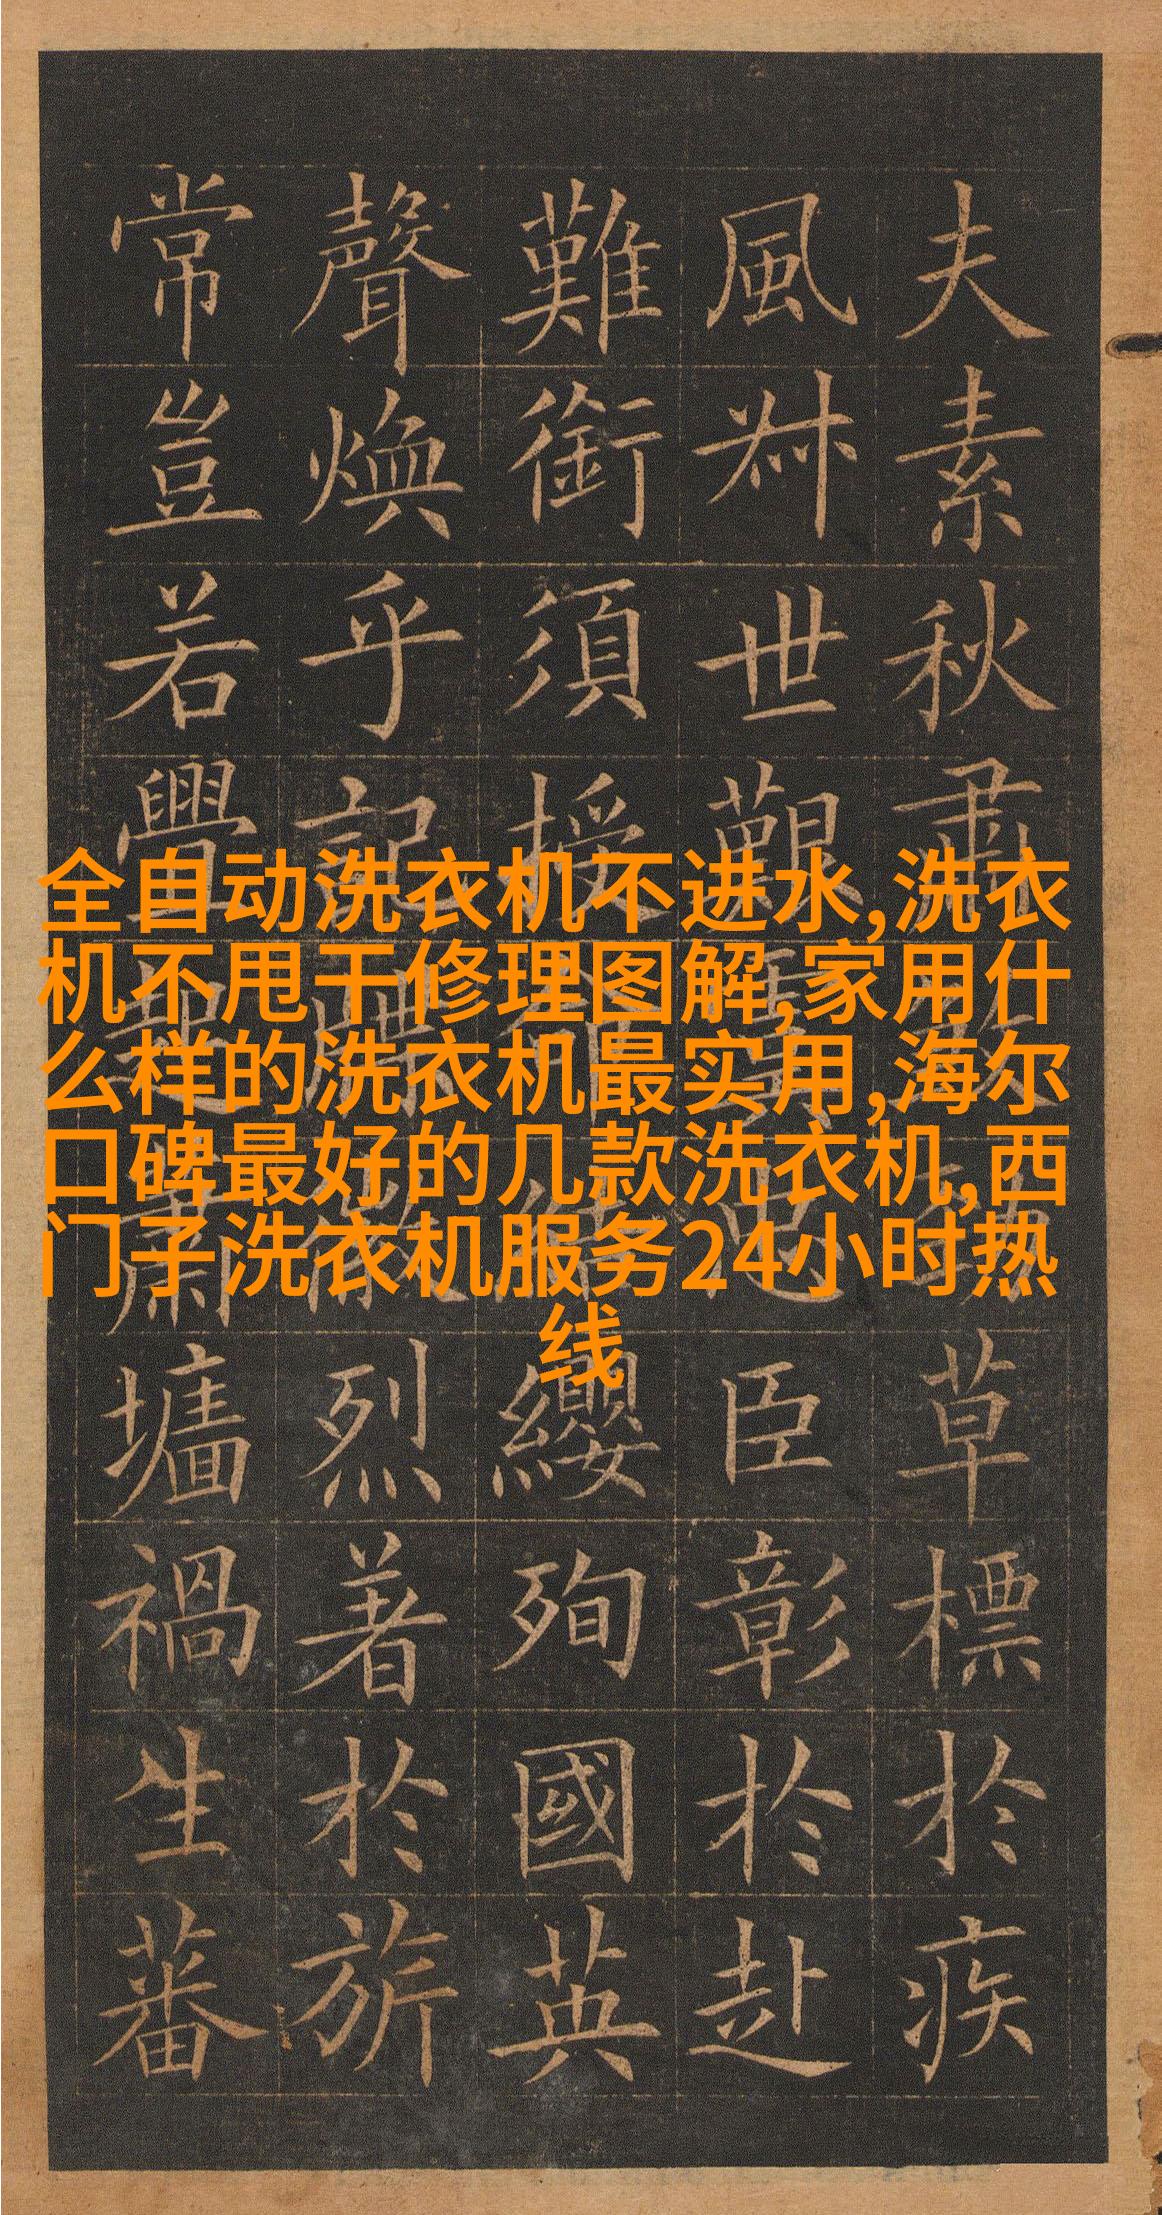 全自动洗衣机不进水,洗衣
机不甩干修理图解,家用什
么样的洗衣机最实用,海尔
口碑最好的几款洗衣机,西
门子洗衣机服务24小时热
线
夫素秋肅草標於疾
風叔世艱臣彰於赴
難銜須授纓殉國英
聲煥乎記烈著於旂
常豈若舋墻禍生蕃